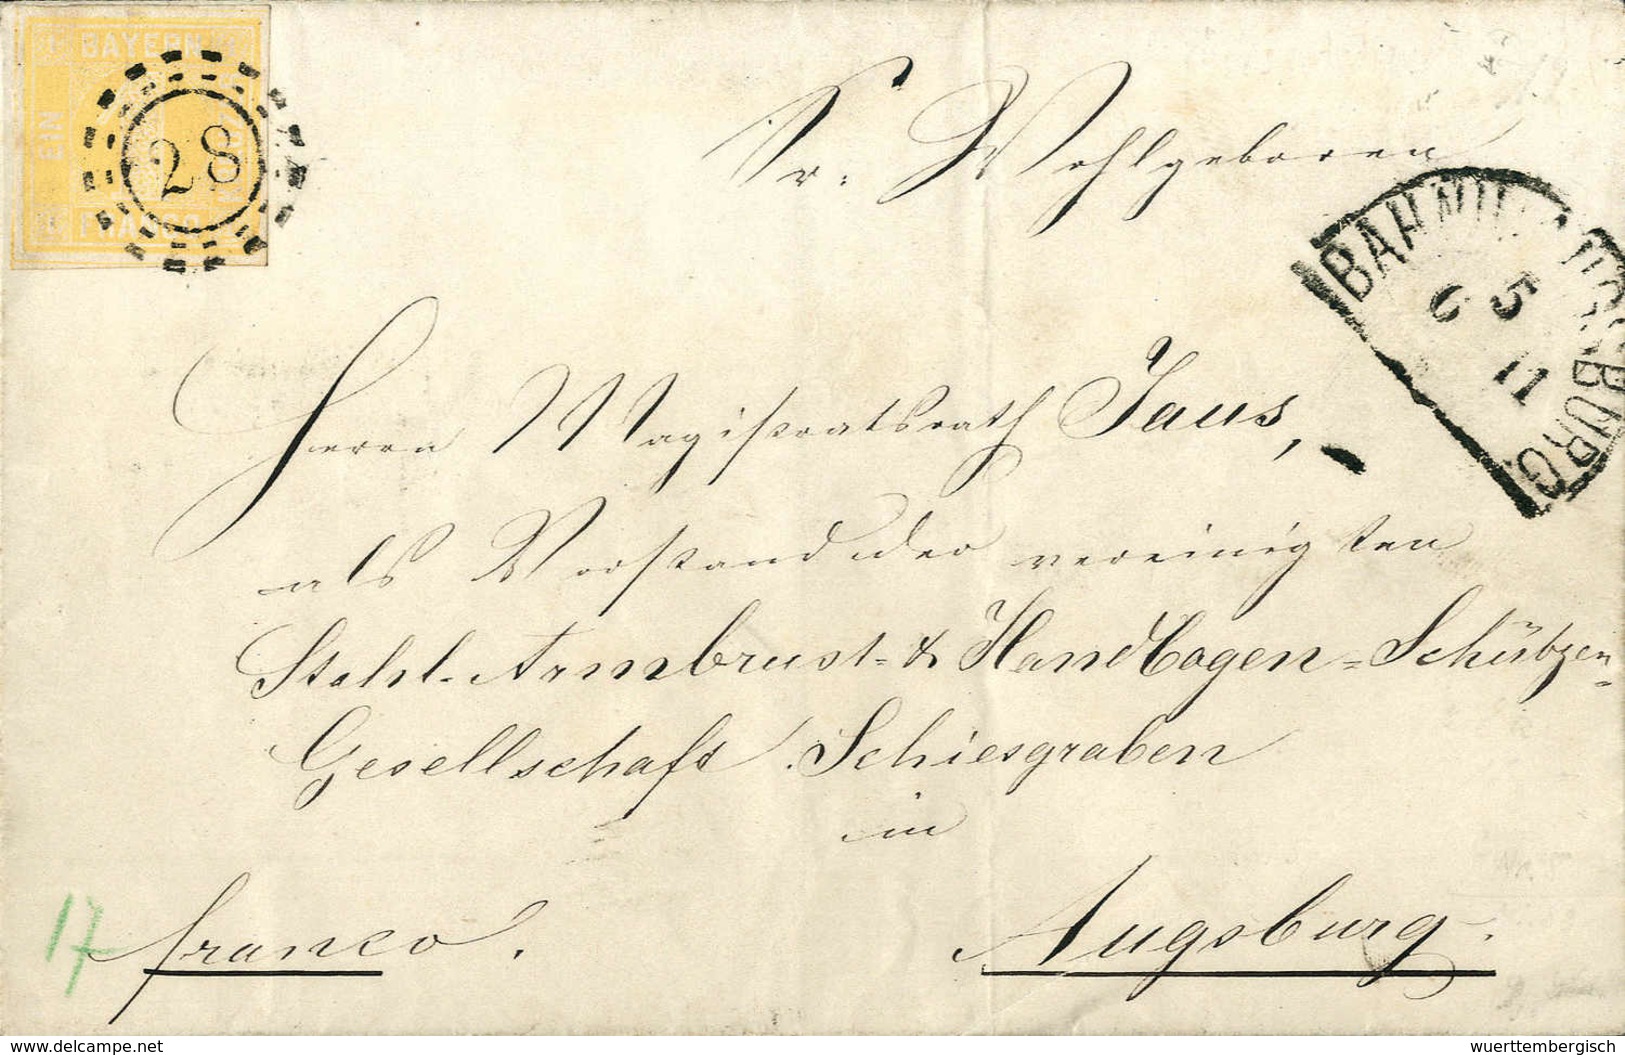 BAYERN
EIN
FRANCO
28
Sr. Wohlgeboren
BAHNH. AUGSBURG
5 11
6
Herrn Magistratsrath Jaus,
als Vorstand der vereinigten
Stahl-Armbrust- & Handbogen-Schützen-
Gesellschaft Schiesgraben
in
17
franco.
Augsburg.
www.delcampe.net
wuerttembergisch